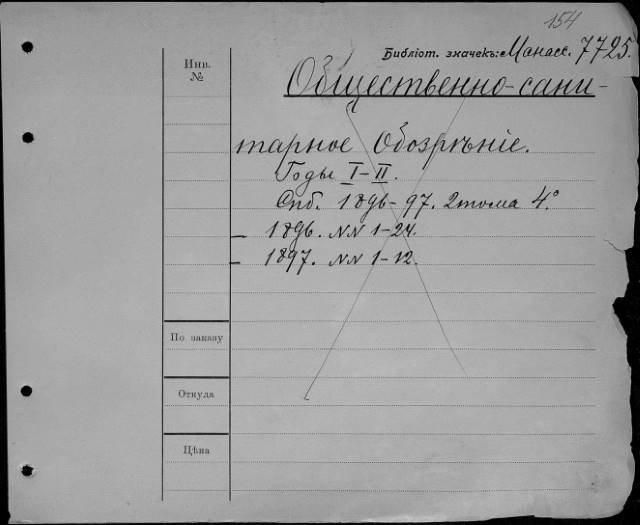 154
Библіот. значекъ: Манасс. 7725.
Инв.
№
Общественно-сани-
тарное Обозрѣніе.
Годы I-II.
Спб. 1896-97. 2 тома 4°
— 1896. NN 1-24.
— 1897. NN 1-12.
По заказу
Откуда
Цѣна